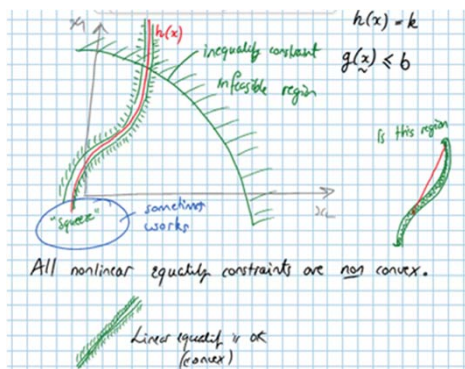 x₁
h(x)
h(x) = k
inequality constraint
g(x) ≤ b
infeasible region
Is this region
"Squeeze"
sometimes
works
x₂
All nonlinear equality constraints are non convex.
Linear equality is ok
(convex)